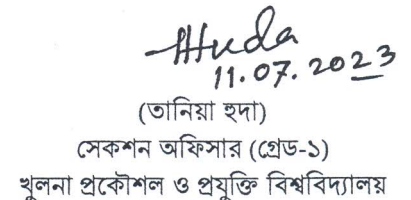 Huda
11.07.2023
(তানিয়া হুদা)
সেকশন অফিসার (গ্রেড-১)
খুলনা প্রকৌশল ও প্রযুক্তি বিশ্ববিদ্যালয়